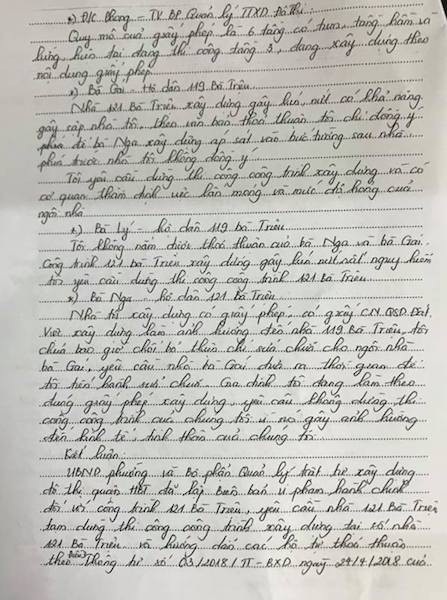 *) Đ/c Phong - TV BP Quản lý TTXD Đô Thị:
Quy mô của giấy phép là 6 tầng có tum, tầng hầm và
lửng, hiện tại đang thi công tầng 3, đang xây dựng theo
nội dung giấy phép.
*) Bà Gái - Hộ dân 119 Bà Triệu.
Nhà 121 Bà Triệu xây dựng gây lún, nứt có khả năng
gây sập nhà tôi, theo văn bản thoả thuận tôi chỉ đồng ý
phía để bà Nga xây dựng áp sát vào bức tường sau nhà,
phía trước nhà tôi không đồng ý.
Tôi yêu cầu dừng thi công công trình xây dựng và có
cơ quan thẩm định việc lún móng và mức độ hỏng của
ngôi nhà
*) Bà Lý - hộ dân 119 Bà Triệu.
Tôi không nắm được thoả thuận của bà Nga và bà Gái.
Công trình 121 Bà Triệu xây dựng gây lún nứt rất nguy hiểm
tôi yêu cầu dừng thi công công trình 121 Bà Triệu.
*) Bà Nga - hộ dân 121 Bà Triệu
Nhà tôi xây dựng có giấy phép, có giấy CN QSD Đất,
Việc xây dựng làm ảnh hưởng đến nhà 119 Bà Triệu, tôi
chưa bao giờ chối bỏ thiện chí sửa chữa cho ngôi nhà
bà Gái, yêu cầu nhà bà Gái đưa ra thời gian để
tôi tiến hành sửa chữa. Gia đình tôi đang làm theo
đúng giấy phép xây dựng, yêu cầu không dừng thi
công công trình của chúng tôi vì nó gây ảnh hưởng
đến kinh tế, tinh thần của chúng tôi
Kết luận:
UBND phường và Bộ phận Quản lý trật tự xây dựng
đô thị quận HBT đã lập biên bản vi phạm hành chính
đối với công trình 121 Bà Triệu, yêu cầu nhà 121 Bà Triệu
tạm dừng thi công công trình xây dựng tại số nhà
121 Bà Triệu và hướng dẫn các hộ tự thoả thuận
theo Thông tư số 03/2018/TT-BXD ngày 24/4/2018 của